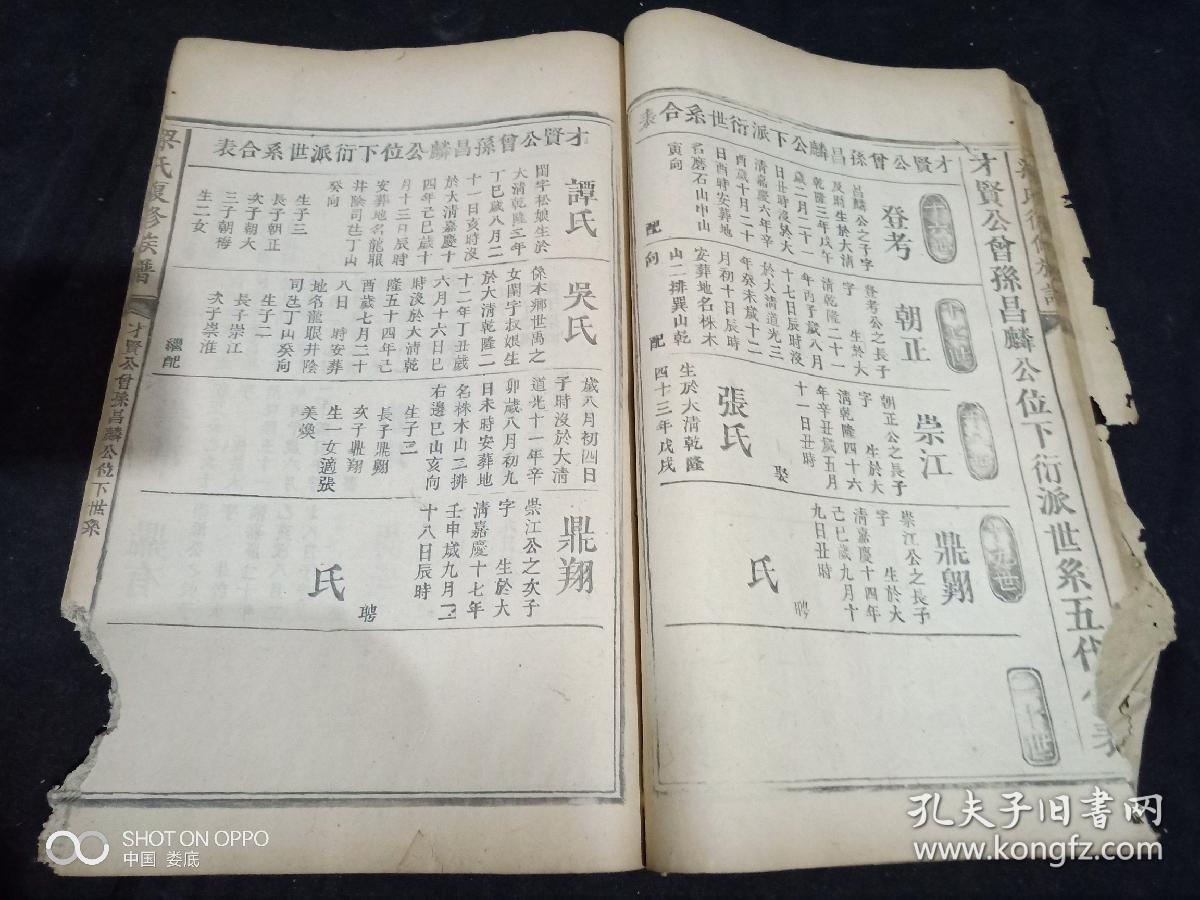 才賢公曾孫昌麟公位下衍派世系五代
才賢公曾孫昌麟公下派衍世系合表
十六世
登考
昌麟公之子字
及時生於大清
乾隆三年戊午
歲二月二十一
日丑時沒於大
清嘉慶六年辛
酉歲十月二十
日酉時安葬地
名磨石山申山
寅向
配
十七世
朝正
登考公之長子
字　生於大
清乾隆二十一
年丙子歲八月
十七日辰時沒
於大清道光三
年癸未歲十二
月初十日辰時
安葬地名株木
山二排巽山乾
向
配
十八世
崇江
朝正公之長子
字　生於大
清乾隆四十六
年辛丑歲五月
十一日丑時
娶
張氏
生於大清乾隆
四十三年戊戌
十九世
鼎翺
崇江公之長子
字　生於大
清嘉慶十四年
己巳歲九月十
九日丑時
聘
氏
二十世
才賢公曾孫昌麟公位下衍派世系合表
譚氏
閨字松娘生於
大清乾隆二年
丁巳歲八月二
十一日亥時沒
於大清嘉慶十
四年己巳歲十
月十三日辰時
安葬地名龍眼
井陰司乸丁山
癸向
生子三
長子朝正
次子朝大
三子朝梅
生二女
吳氏
係本鄉世禹之
女閨字叔娘生
於大清乾隆二
十二年丁丑歲
六月十六日巳
時沒於大清乾
隆五十四年己
酉歲七月二十
八日　時安葬
地名龍眼井陰
司乸丁山癸向
生子二
長子崇江
次子崇淮
繼配
歲八月初四日
子時沒於大清
道光十一年辛
卯歲八月初九
日未時安葬地
名株木山三排
右邊巳山亥向
生子二
長子鼎翺
次子鼎翔
生一女適張
美煥
鼎翔
崇江公之次子
字　生於大
清嘉慶十七年
壬申歲九月二
十八日辰時
聘
氏
氏復修族譜
才賢公曾孫昌麟公位下世系
SHOT ON OPPO
中国 娄底
孔夫子旧書网
www.kongfz.com